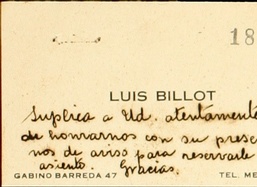 18
LUIS BILLOT
Suplica a Ud. atentamente
de honrarnos con su prese
nos de aviso para reservarle
asiento. Gracias.
GABINO BARREDA 47 TEL. ME